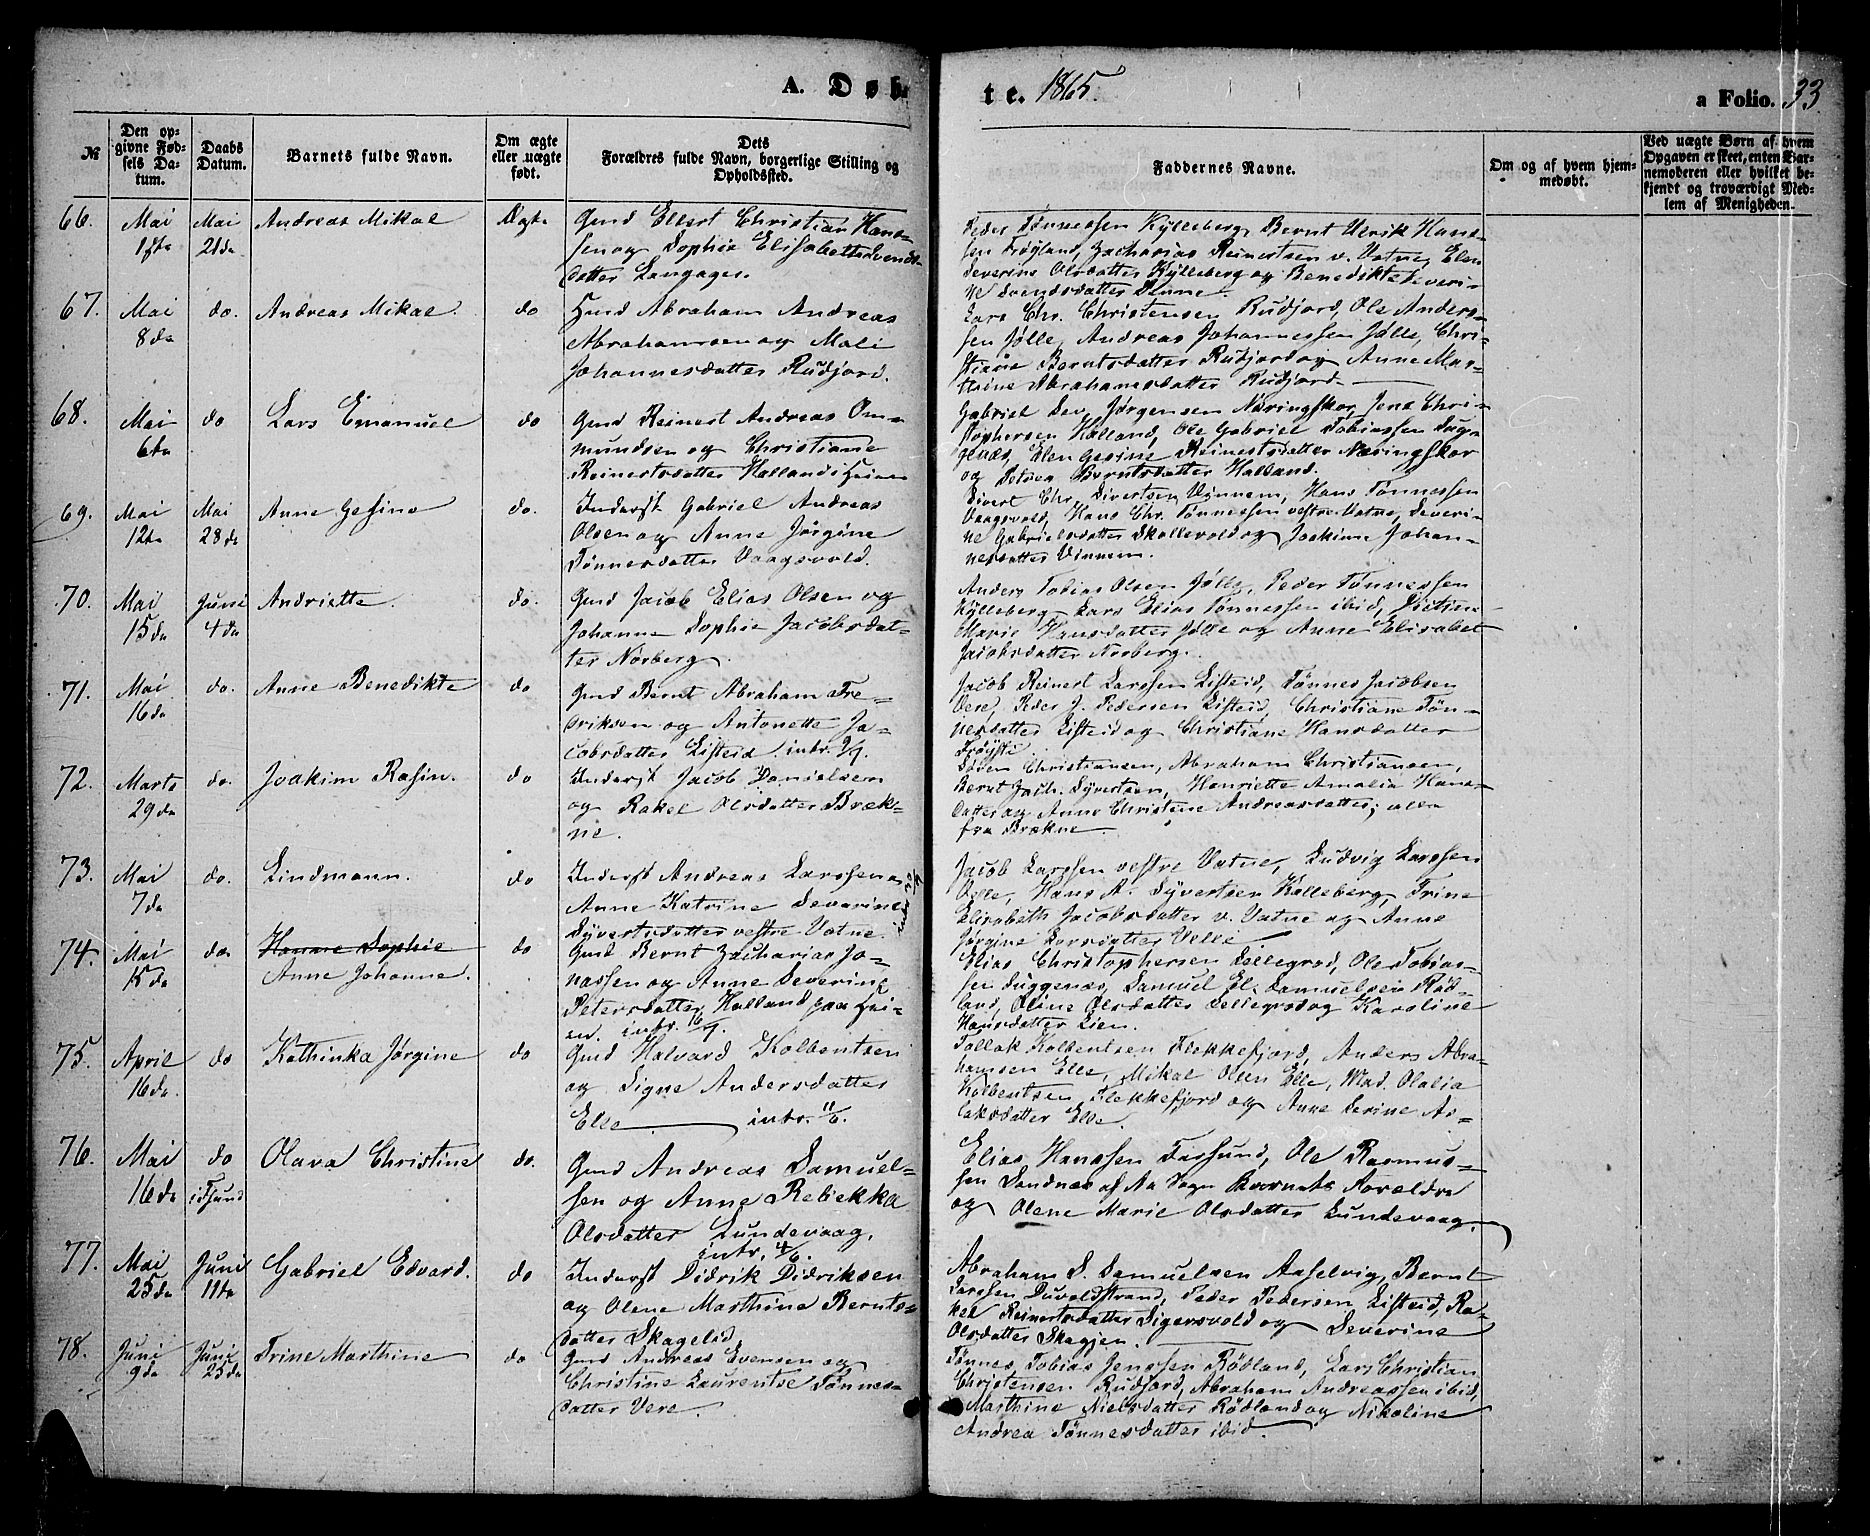 A. Døb-
te. 1865.
a Folio. 33
№
Den op-
givne Fød-
sels Da-
tum.
Daabs
Datum.
Barnets fulde Navn.
Om ægte
eller uægte
født.
Dets
Forældres fulde Navn, borgerlige Stilling og
Opholdssted.
Faddernes Navne.
Om og af hvem hjem-
medøbt.
Ved uægte Børn af hvem
Opgaven er skeet, enten Bar-
nemoderen eller hvilket be-
kjendt og troværdigt Med-
lem af Menigheden.
66. Mai Mai Andreas Mikal Ægte Gmd Ellert Christian Han-
21de sen og Sophie Elisabeth Svends-
datter Langager.
Peder Tønnessen Kylleberg, Bernt Ulrik Han-
sen Frøyland, Zacharias Reinertsen v. Vatne, Elen
Severine Olsdatter Kylleberg og Benedikte Severi-
ne Svendsdatter
67. Mai do. Andreas Mikal. do Gmd Abraham Andreas
8de Abrahamsen og Mali
Johannesdatter Rudjord.
Lars Chr. Christensen Rudjord, Ole Anders-
sen Jølle, Andreas Johannessen Jølle, Chri-
stiane Berntsdatter Rudjord og Anne Mar-
thine Abrahamsdatter Rudjord
68. Mai do Lars Emanuel do Gmd Reinert Andreas Om-
6te mundsen og Christiane
Reinertsdatter Halland i
Gabriel Sev. Jørgensen Næringskor, Jens Chri-
stophersen Halland, Ole Gabriel Tobiassen Dug-
genæs, Elen Gesine Reinertsdatter Næringskor
og Berntsdatter Halland.
69. Mai Mai Anne Gesine do. Inderst Gabriel Andreas
12te 28de Olsen og Anne Jørgine
Tønnesdatter Vaagsvold.
Sivert Chr. Sivertsen Vinnem, Hans Tønnessen
Vaagsvold, Hans Chr. Tønnessen vestre Vatne, Severi-
ne Gabrielsdatter Skollevold og Joakime Johan-
nesdatter Vinnem.
70. Mai Juni Andriette. do. Gmd Jacob Elias Olsen og
15de 4de Johanne Sophie Jacobsdat-
ter Norberg.
Anders Tobias Olsen Jølle, Peder Tønnessen
Kylleberg, Lars Elias Tønnessen ibid,
Marie Hansdatter Jølle og Anne Elisabet
Jacobsdatter Norberg.
71. Mai do. Anne Benedikte do Gmd Bernt Abraham Fre-
16de driksen og Antonette Ja-
cobsdatter Eisteid. intr. 9/7.
Jacob Reinert Larssen Eisteid, Tønnes Jacobsen
Vere, Peder J. Pedersen Eisteid, Christiane Tøn-
nesdatter Eisteid og Christiane Hansdatter
72. Marts do. Joakim Rasin. do Inderst Jacob Danielsen
29de og Rakel Olsdatter Bræk-
ne.
Søren Christiansen, Abraham Christiansen,
Bernt Jach. Syvertsen, Henriette Amalia Hans-
datter og Anne Christene Andreasdatter; alle
fra Brækne
73. Mai do. Lindmann. do Inderst Andreas Larssen og
7de Anne Katrine Severine
Syvertsdatter vestre Vatne.
Jacob Larssen vestre Vatne, Ludvig Larssen
Velle, Hans A. Syvertsen Kolleberg, Trine
Elisabeth Jacobsdatter v. Vatne og Anne
Jørgine Larsdatter Velle.
74. Mai do. Hanne Sophie do Gmd Bernt Zacharias Jo-
15de Anne Johanne. nassen og Anne Severine
Petersdatter, Halland paa Hei-
en. intr. 16/7.
Elias Christophersen Sellegrod, Ole Tobias-
sen Duggenæs, Samuel El. Samuelsen Rød-
land, Oline Olsdatter Sellegrod og Karoline
Hansdatter Lien.
75. April do Kathinka Jørgine do Gmd Halvard Kolbentsen
16de og Signe Andersdatter
Elle intr. 11/6.
Tollak Kolbentsen Flekkefjord, Anders Abra-
hamsen Elle, Mikal Olsen Elle, Mad. Olalia
Kolbentsen, Flekkefjord og Anne Serine As-
laksdatter Elle.
76. Mai do Olava Christine do. Gmd Andreas Samuel-
16de i Fsund sen og Anne Rebekka
Olsdatter Lundevaag,
intr. 4/6.
Elias Hanssen Farsund, Ole Rasmus-
sen Sandnæs af Aa Sogn Barnets Forældre
og Olene Marie Olsdatter Lundevaag.
77. Mai Juni Gabriel Edvard. do Inderst Didrik Didriksen
25de 11de og Olene Marthine Bernts-
datter Skageled
Abraham S. Samuelsen Aaselvig, Bernt
Larssen Duvoldstrand, Peder Pedersen Eisteid, Ra-
kel Reinertsdatter Sigersvold og Severine
Olsdatter Skagjen.
78. Juni Juni Trine Marthine do Gmd Andreas Evensen og
9de 25de Christine Laurentse Tønnes-
datter Vere.
Tønnes Tobias Jenssen Rødland, Lars Christian
Christensen Rudjord, Abraham Andreassen ibid,
Marthine Nielsdatter Rødland og Nikoline
Andrea Tønnesdatter ibid.